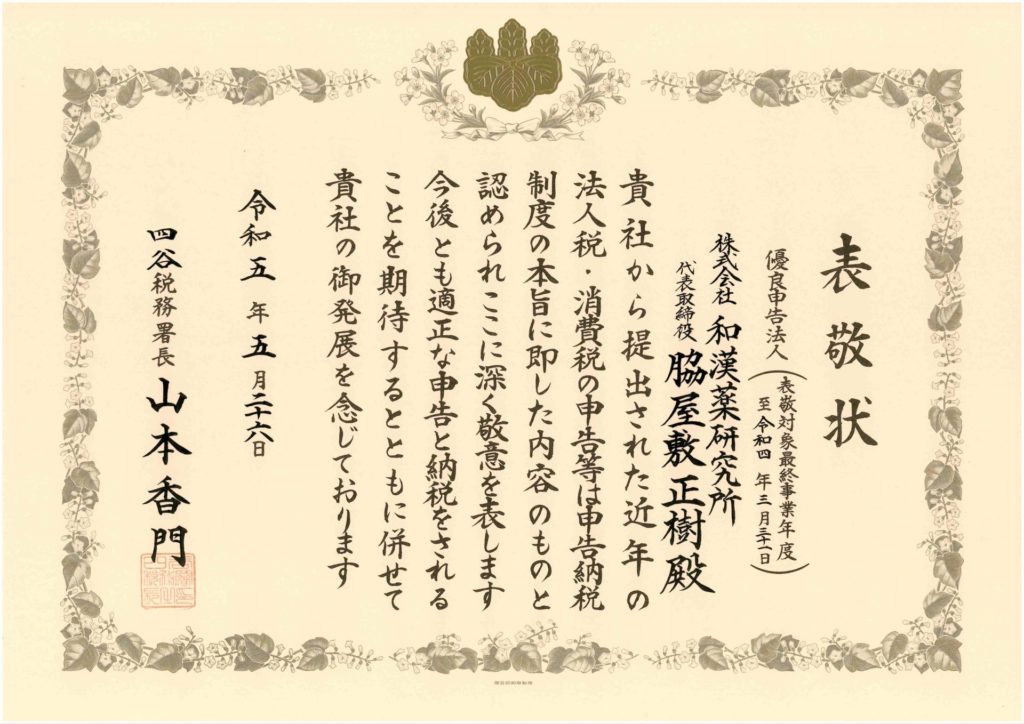 表敬状
優良申告法人
表敬対象最終事業年度
至令和四年三月三十一日
株式会社 和漢薬研究所
代表取締役 脇屋敷正樹殿
貴社から提出された近年の
法人税・消費税の申告等は申告納税
制度の本旨に即した内容のものと
認められここに深く敬意を表します
今後とも適正な申告と納税をされる
ことを期待するとともに併せて
貴社の御発展を念じております
令和五年五月二十六日
四谷税務署長 山本香門